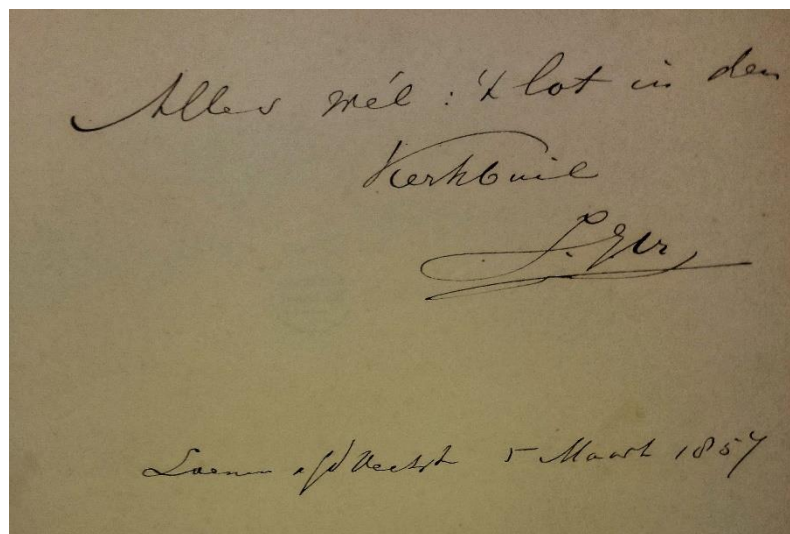 Alles wél : 't lot in den
Kerkbuil
Loenen a/d Vecht 5 Maart 1857